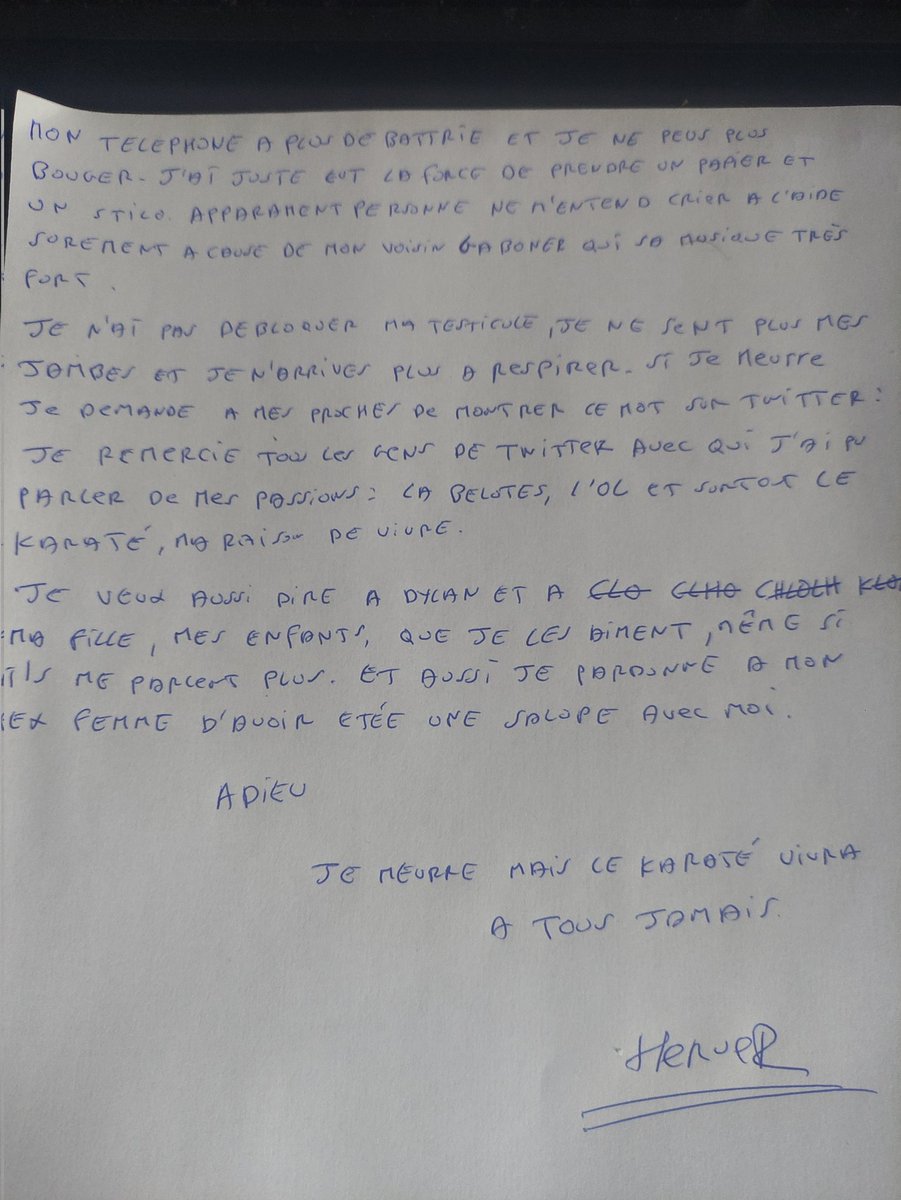 MON TELEPHONE A PLUS DE BATTRIE ET JE NE PEUS PLUS
BOUGER. J'AI JUSTE EUT LA FORCE DE PRENDRE UN PAPIER ET
UN STILO. APPARAMENT PERSONNE NE M'ENTEND CRIER A L'AIDE
SOREMENT A CAUSE DE MON VOISIN GABONER QUI SA MUSIQUE TRÈS
FORT.
JE N'AI PAS DEBLOQUER MA TESTICULE, JE NE SENT PLUS MES
JAMBES ET JE N'ARRIVES PLUS A RESPIRER. SI JE MEURRE
JE DEMANDE A MES PROCHES DE MONTRER CE MOT SUR TWITTER :
JE REMERCIE TOUS LES GENS DE TWITTER AVEC QUI J'AI PU
PARLER DE MES PASSIONS : LA BELOTES, L'OL ET SURTOUT LE
KARATÉ, MA RAISON DE VIVRE.
JE VEUX AUSSI DIRE A DYLAN ET A CLO CLHO CHLOEH KLO
MA FILLE, MES ENFANTS, QUE JE LES AIMENT, MÊME SI
ILS ME PARLENT PLUS. ET AUSSI JE PARDONNE A MON
EX FEMME D'AVOIR ETÉE UNE SALOPE AVEC MOI.
ADIEU
JE MEURRE MAIS LE KARATÉ VIVRA
A TOUS JAMAIS.
HERVER